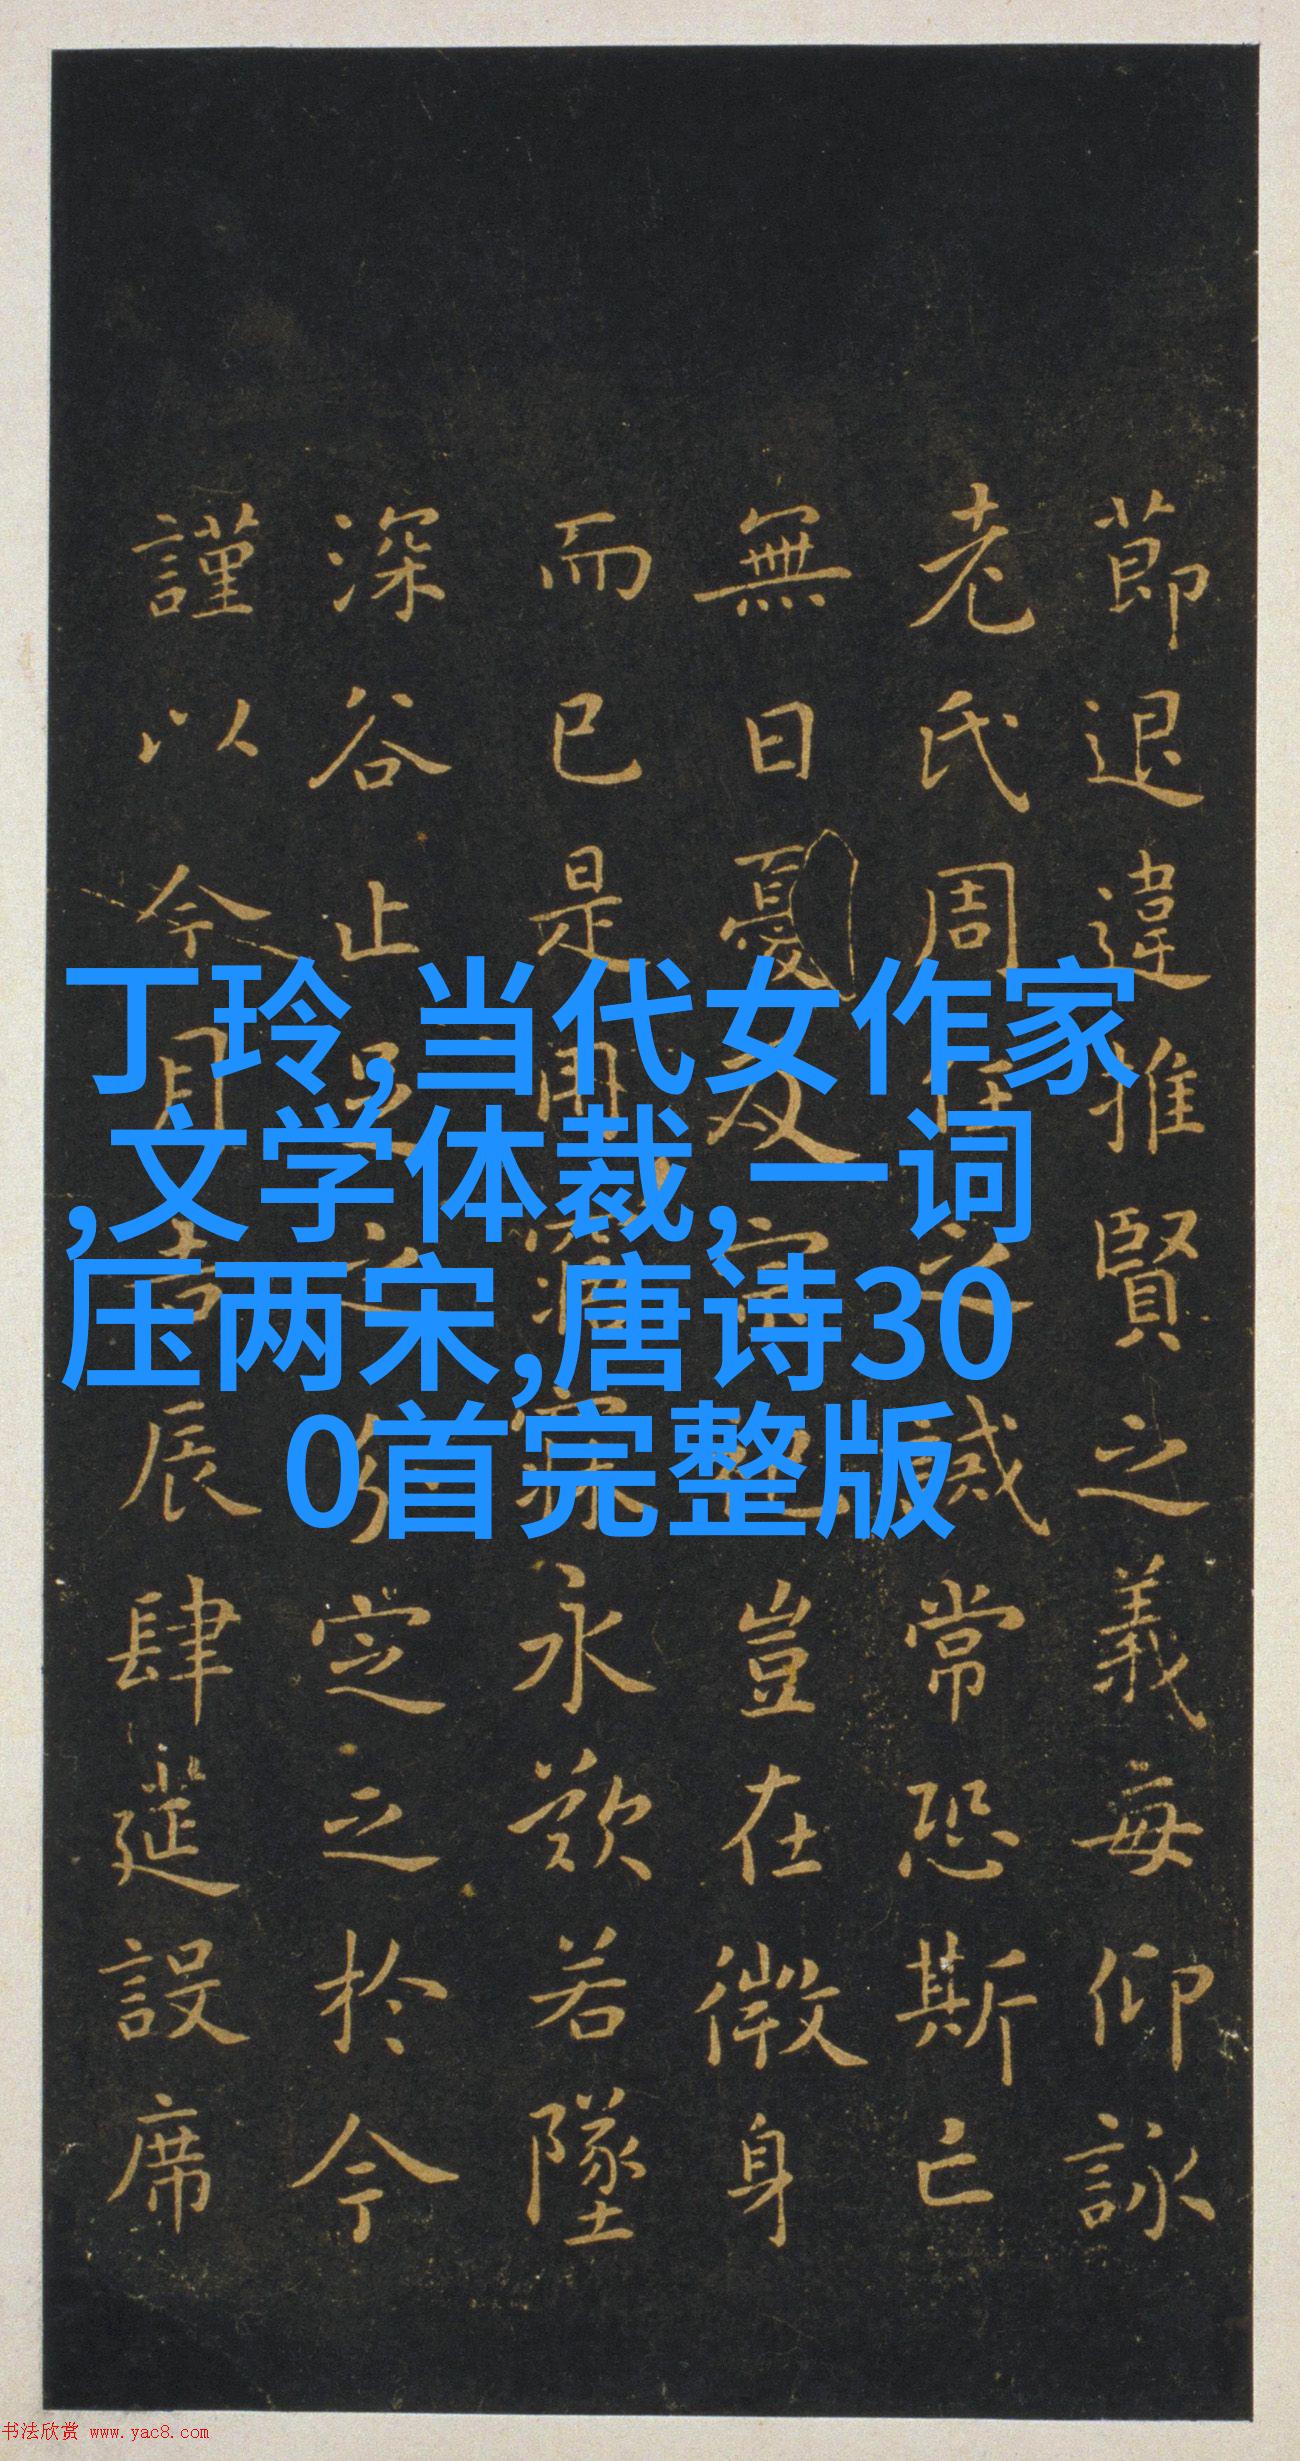 節退違推賢之義每仰詠
老氏周任之誡常恐斯亡
無日憂及宗祀豈在微身
而已是用寤寐永歎若墜
深谷止足之分定之於今
謹以今月吉辰肆筵設席
丁玲,当代女作家
,文学体裁,一词
压两宋,唐诗30
0首完整版
书法欣赏 www.yac8.com